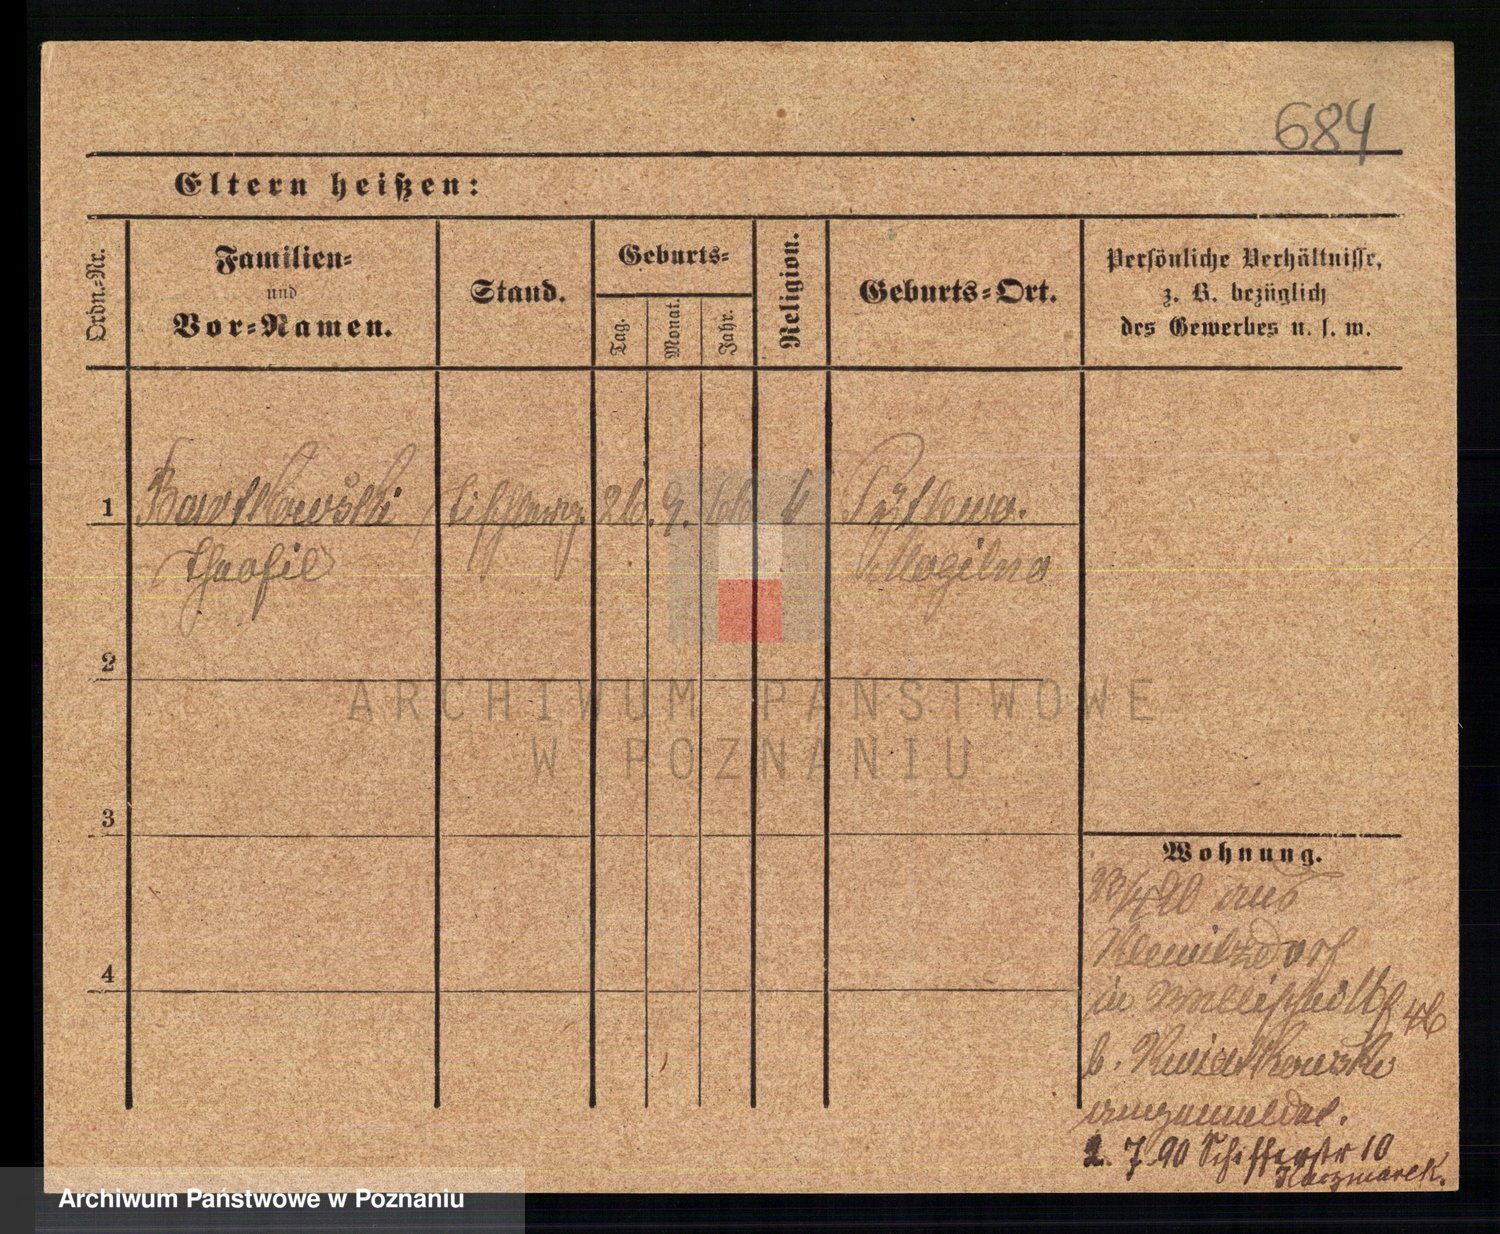 684
Eltern heißen:
Ordn.-Nr.
Familien-
und
Vor-Namen.
Stand.
Geburts-
Tag.
Monat.
Jahr.
Religion.
Geburts-Ort.
Persönliche Verhältnisse,
z. B. bezüglich
des Gewerbes u. s. w.
1 Bartkowski 26. 9. 66 k
Theofil Mogilno
2
3
4
Wohnung.
23/4 90 aus
in 46
b. Kwiatkowski
angemeldet.
2. 7. 90 Schifferstr 10
Kaczmarek.
ARCHIWUM PAŃSTWOWE
W POZNANIU
Archiwum Państwowe w Poznaniu